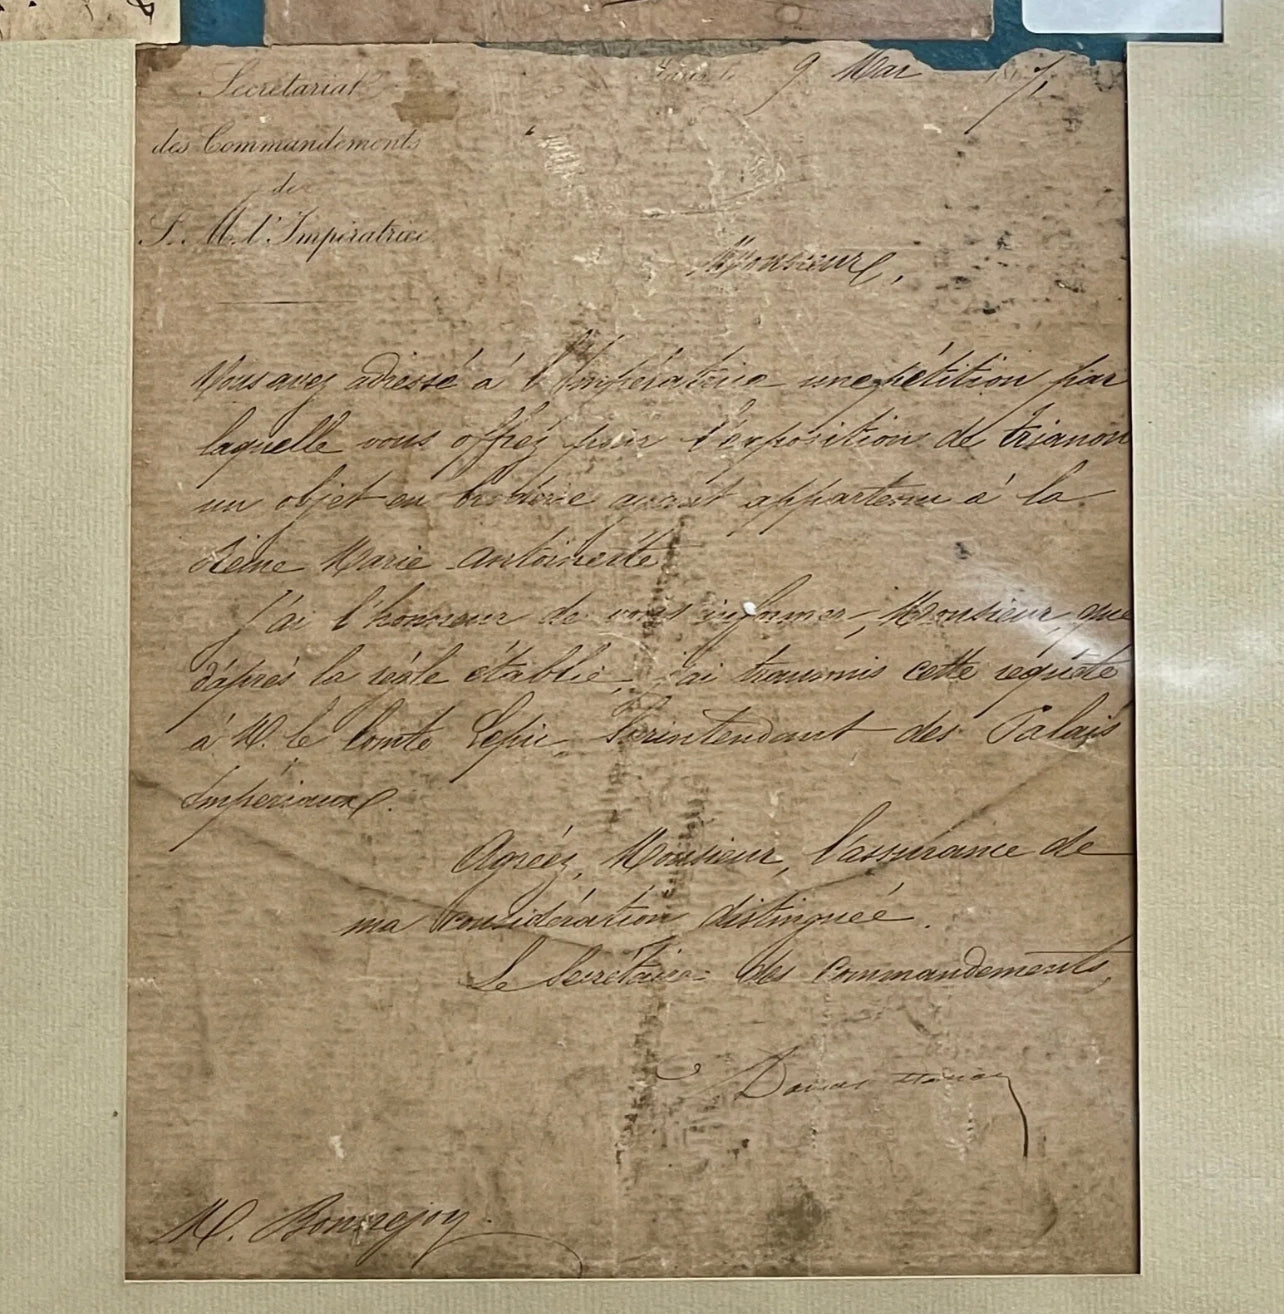 Secrétariat
des Commandements
de
S. M. l'Impératrice
9 Mai
Monsieur,
Vous avez adressé à l'Impératrice une pétition par
laquelle vous offrez pour l'exposition de Trianon
un objet en broderie ayant appartenu à la
Reine Marie Antoinette
J'ai l'honneur de vous informer, Monsieur, que
d'après la régle établie, j'ai transmis cette requête
à M. le Comte Lepic, Surintendant des Palais
Impériaux.
Agréez, Monsieur, l'assurance de
ma considération distinguée.
Le Secrétaire des Commandements,
Damas Hinard
M. Bonnejoy